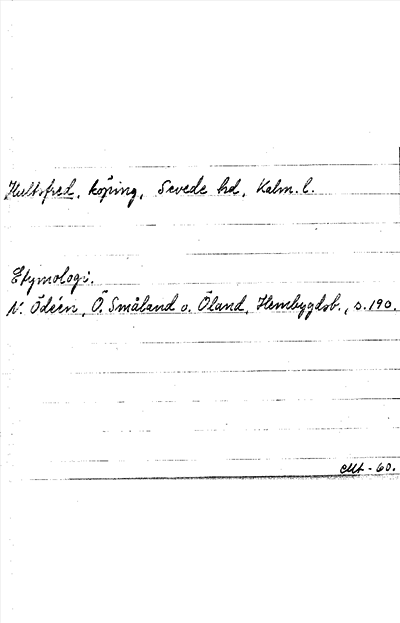 Hultsfred, köping, Sevede hd, Kalm. l.
Etymologi.
N. Ödéen, Ö. Småland o. Öland, Hembygdsb., s. 190.